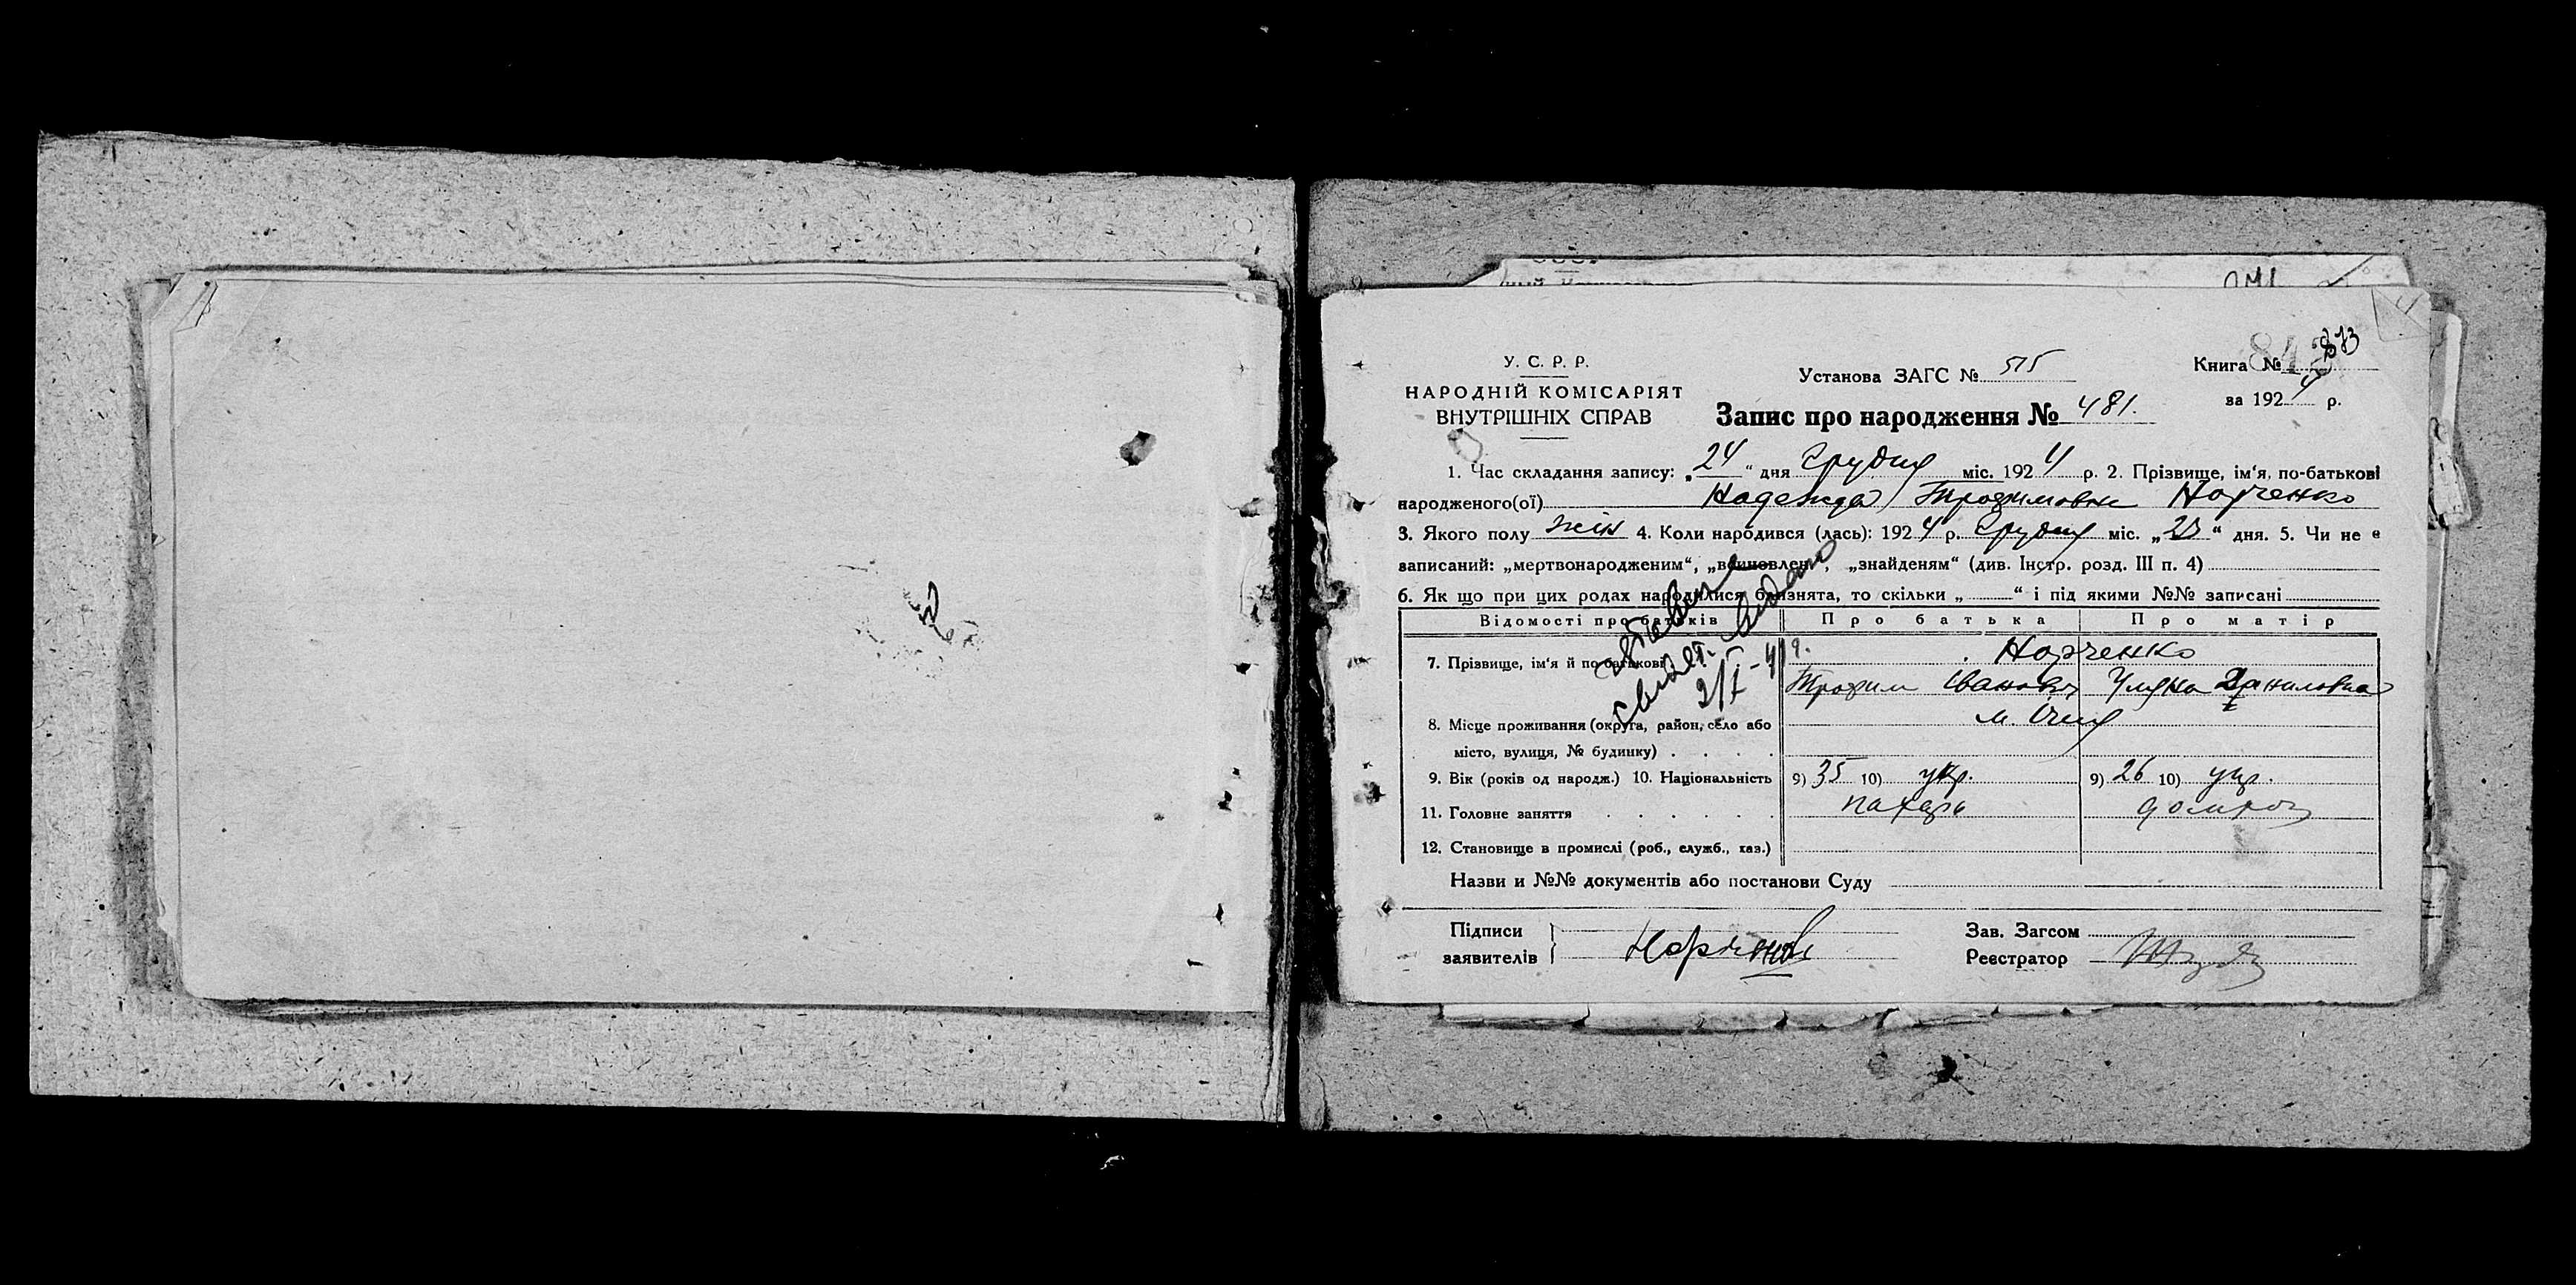 У. С. Р. Р.
НАРОДНІЙ КОМІСАРІЯТ
ВНУТРІШНІХ СПРАВ
Установа ЗАГС № 515
Книга №
за 1924 р.
Запис про народження № 481.
1. Час складання запису: „24“ дня Грудня міс. 1924 р. 2. Прізвище, ім'я, по-батькові
народженого(ої) Надежда Трофимовна Норченко
3. Якого полу жін 4. Коли народився (лась): 1924 р. Грудня міс. „23“ дня. 5. Чи не є
записаний: „мертвонародженим“, „всиновлен“, „знайденям“ (див. Інстр. розд. III п. 4)
6. Як що при цих родах народилися близнята, то скільки „ “ і під якими №№ записані
Відомості про батьків Про батька Про матір
7. Прізвище, ім'я й по батькові Норченко
Трофим Іванович Уляна Даниловна
8. Місце проживання (округа, район, село або м. Ічня
місто, вулиця, № будинку)
9. Вік (років од народж.) 10. Національність 9) 35 10) укр. 9) 26 10) укр.
11. Головне заняття пахарь домроб
12. Становище в промислі (роб., служб., хаз.)
Назви и №№ документів або постанови Суду
Підписи
заявителів Норченко
Зав. Загсом
Реєстратор